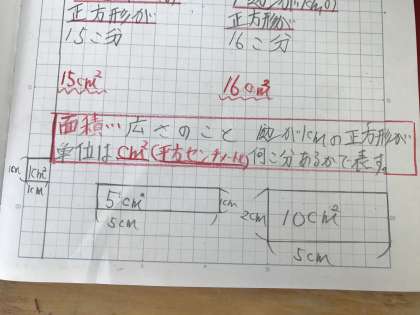 正方形が
正方形が
15こ分
16こ分
15cm²
16cm²
面積… 広さのこと 辺が1cmの正方形が
単位はcm²(平方センチメートル)何こ分あるかで表す。
1cm
1cm²
1cm
5cm²
1cm
5cm
2cm
10cm²
5cm